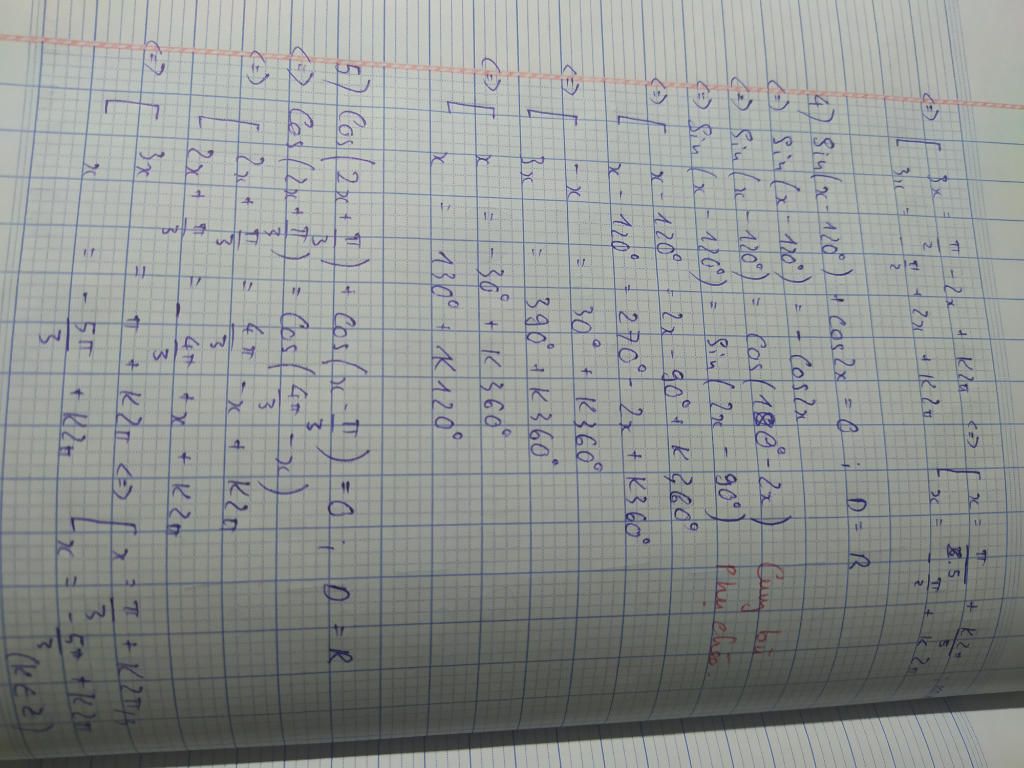 <=> [ 3x = π/2 - 2x + k2π <=> [ x = π/2.5 + k2π/5
[ 3x = - π/2 + 2x + k2π [ x = - π/2 + k2π
4) Sin(x - 120°) + cos2x = 0 ; D = R
<=> Sin(x - 120°) = - Cos2x
<=> Sin(x - 120°) = Cos(180° - 2x)
<=> Sin(x - 120°) = Sin(2x - 90°)
<=> [ x - 120° = 2x - 90° + k360°
[ x - 120° = 270° - 2x + k360°
<=> [ - x = 30° + k360°
[ 3x = 390° + k360°
<=> [ x = -30° + k360°
[ x = 130° + k120°
5) Cos(2x + π/3) + Cos(x - π/3) = 0 ; D = R
<=> Cos(2x + π/3) = Cos(4π/3 - x)
<=> [ 2x + π/3 = 4π/3 - x + k2π
[ 2x + π/3 = - 4π/3 + x + k2π
<=> [ 3x = π + k2π <=> [ x = π/3 + k2π/
[ x = - 5π/3 + k2π [ x = - 5π/3 + k2π
(k∈z)